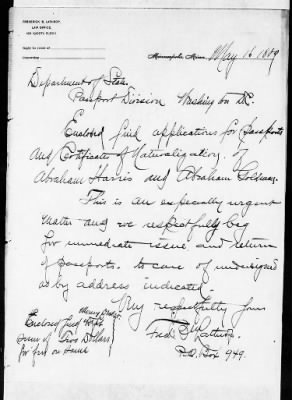 FREDERICK B. LATHROP,
LAW OFFICE,
Minneapolis, Minn. May 16 1889
Department of State
Passport Division Washington DC.
Enclosed find applications for Passports
and Certificates of Naturalization. of
Abraham Harris and Abraham
This is an especially urgent
matter and we respectfully beg
for immediate issue and return
of passports. to care of undersigned
as by address indicated.
Very respectfully yours
Fred B Lathrop.
P.O. Box 949.
Enclosed find Money Order
Sum of Two Dollars
for fees on same